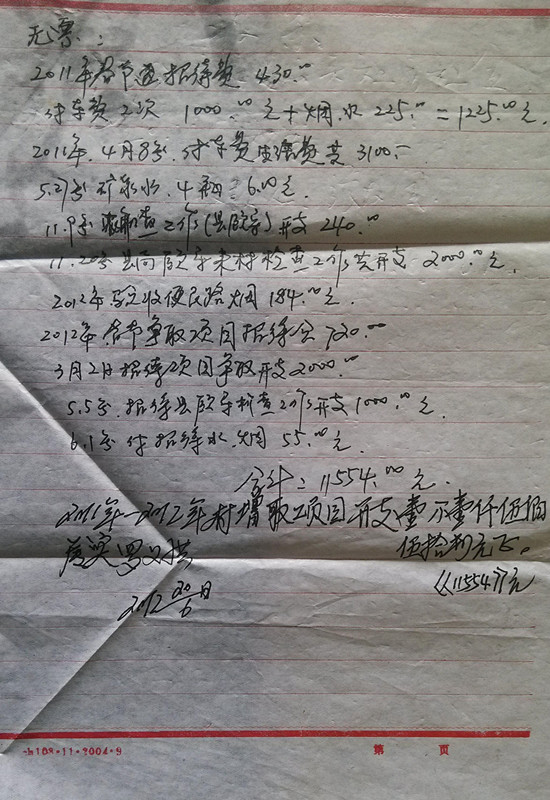 无票:
2011年春节 招待费 430.00
付车费2次 1000.00元+烟.水 225.00=1225.00元.
2011年.4月8号.付车费生活费共3100.-
5.27号矿泉水.4 6.00元.
11.9号 查工作(县领导)开支 240.00
11.20号县 领导来村检查工作共开支 2000.00元.
2012年验收便民路烟 184.00元.
2012年春节争取项目招待 720.00
3月2日招待项目争取开支2000.00
5.5号.招待县领导检查工作开支1000.00元.
6.1号付招待水.烟 55.00元.
合计:11554.00元.
2011年—2012年村增取项目开支壹万壹仟伍佰
伍拾 元正。
属实
《11554》元
2012 20/6日
第 页